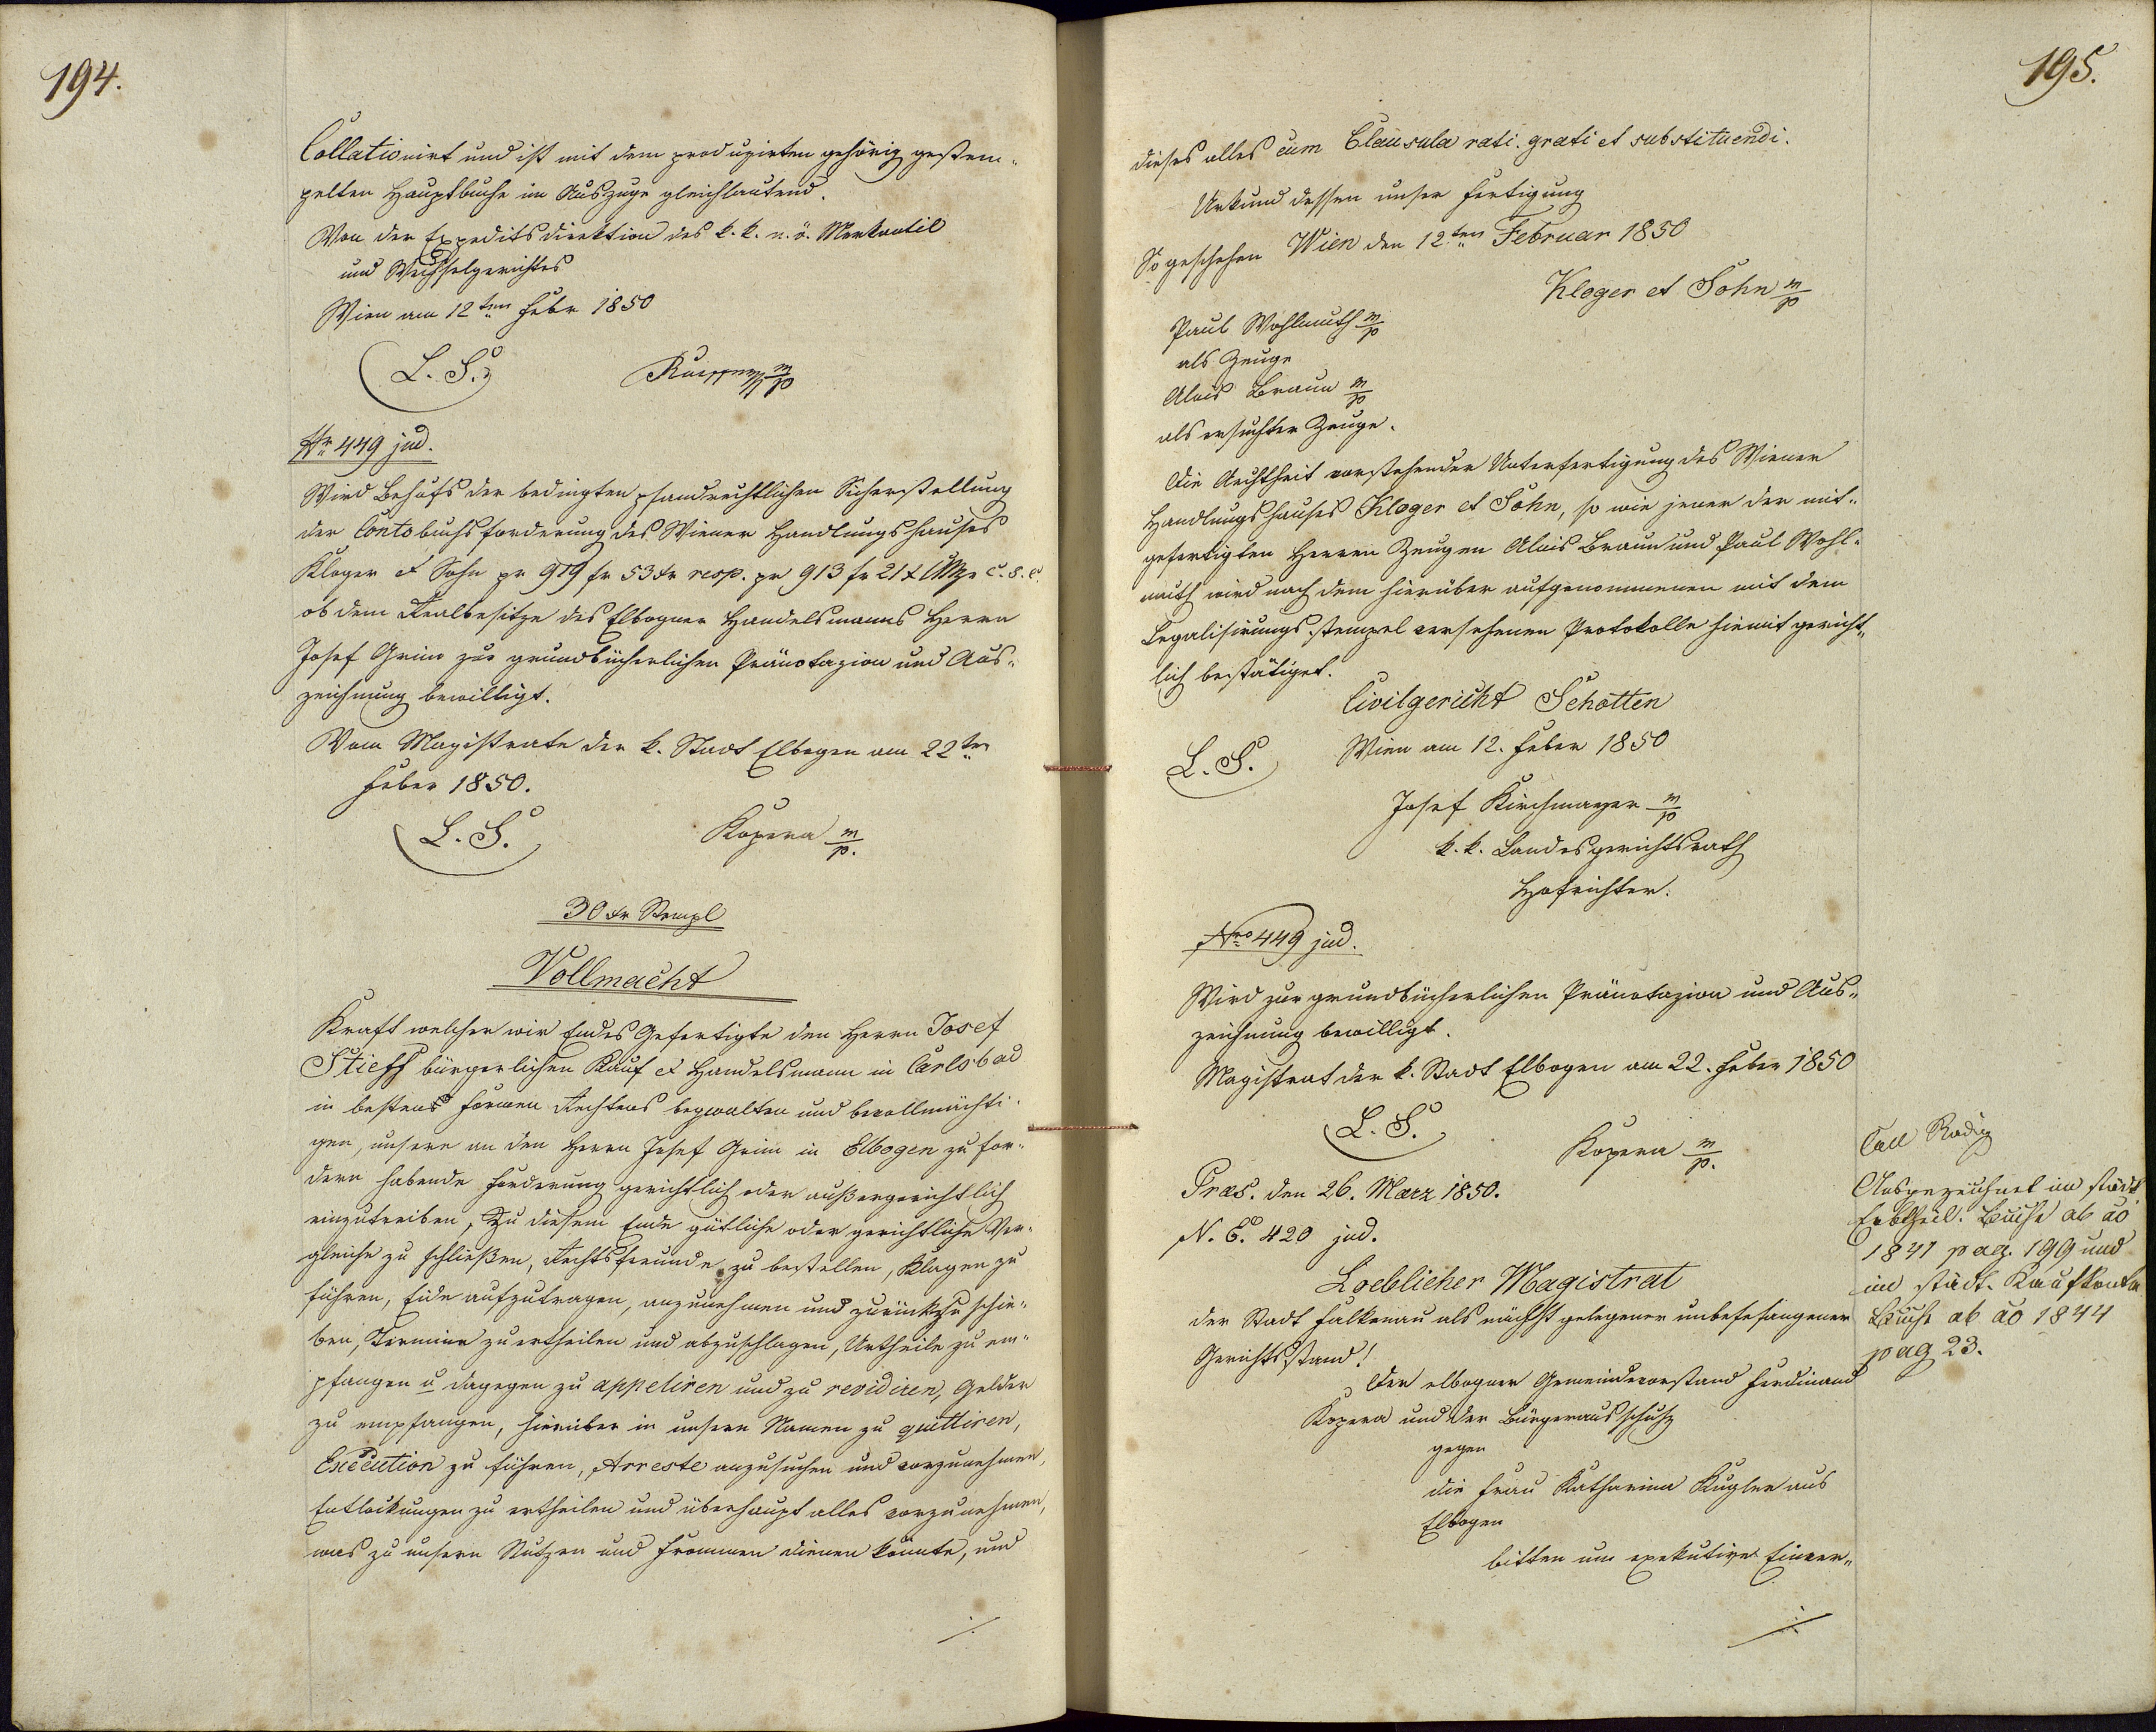 194.
Collationirt und ist mit dem produzirten gehörig gestem¬
pelten Hauptbuche im Auszuge gleichlautend.
Von der Expeditsdirektion des k. k. n. ö. Merkantil
und Wechselgerichtes
Wien am 12ten Febr 1850
L. S.
m/p
Nr 449 jud.
Wird Behufs der bedingten pfandrechtlichen Sicherstellung
der Contobuchsforderung des Wiener Handlungshauses
Kloger et Sohn pr 979 fr 53 xr resp. pr 913 fr 21 x CMze c. s. c.
ob dem Realbesitze des Elbogner Handelsmanns Herrn
Josef Grim zur grundbücherlichen Pränotazion und Aus¬
zeichnung bewilligt.
Vom Magistrate der k. Stadt Elbogen am 22ten
Feber 1850.
L. S.
Kopera m/p.
30 xr Stempl
Vollmacht
Kraft welcher wir Endes Gefertigte den Herrn Josef
Stieff bürgerlichen Kauf et Handelsmann in Carlsbad
in bestens Formen Rechtens begwalten und bevollmächti¬
gen, unsere an den Herrn Josef Grim in Elbogen zu for¬
dern habende Forderung gerichtlich oder außergerichtlich
einzutreiben, Zu diesem Ende gütliche oder gerichtliche Ver¬
gleiche zu schließen, Rechtsfreunde zu bestellen, Klagen zu
führen, Eide aufzutragen, anzunehmen und zurückzu schie¬
ben, Termine zu ertheilen und abzuschlagen, Urtheile zu em¬
pfangen u dagegen zu appeliren und zu revidiren, Gelder
zu empfangen, hierüber in unsern Namen zu quittiren,
Execution zu führen, Arreste anzusuchen und vorzunehmen,
Entlockungen zu ertheilen und überhaupt alles vorzunehmen,
was zu unsern Nutzen und Frommen dienen könnte, und
./.
195.
dieses alles cum Clausula rati. grati et substituendi.
Urkund dessen unser Fertigung
So geschehen Wien den 12ten Februar 1850
Kloger et Sohn m/p
Paul Wohlmuth m/p
als Zeuge
Alois Braun m/p
als ersuchter Zeuge.
Die Aechtheit vorstehender Unterfertigung des Wiener
Handlungshauses Kloger et Sohn, so wie jener der mit¬
gefertigten Herren Zeugen Alois Braun und Paul Wohl¬
muth wird nach dem hierüber aufgenommenen mit dem
Legalisirungsstempel versehenen Protokolle hiemit gericht¬
lich bestätiget.
Civilgericht Schotten
L. S.
Wien am 12. Feber 1850
Josef Kirchmayer m/p
k. k. Landesgerichtsrath
Hofrichter.
Nro 449 jud.
Wird zur grundbücherlichen Pränotazion und Aus¬
zeichnung bewilligt.
Magistrat der k. Stadt Elbogen am 22. Feber 1850
L. S.
Kopera m/p.
Præs. den 26. Marz 1850.
N. E. 420 jud.
Loeblicher Magistrat
der Stadt Falkenau als nächst gelegener unbefefangener
Gerichtsstand!
Der elbogner Gemeindevorstand Ferdinand
Kopera und der Bürgerausschuß
gegen
die Frau Katharina Kugler aus
Elbogen
bitten um exekutive Einver¬
./.
Coll Radig
Ausgezeichnet im städt.
Erbtheil. Buche ab ao
1841 pag. 199 und
im städt. Kaufkontr
Buche ab ao 1844
pag 23.